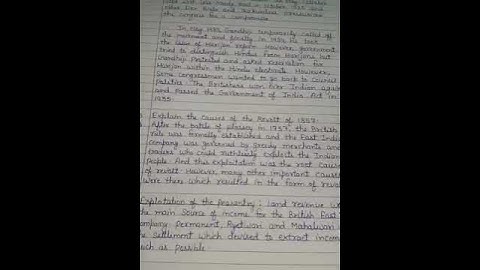 the congress for a compromise.
In May 1933, Gandhiji temporarily called off
the movement and finally in 1934. He took
the issue of Harijan reform. However government
tried to distinguish Hindus from Harijans but
Gandhiji Protested and asked reservation for
Harijan within the Hindu electorate. However,
Some congressmen wanted to go back to Council
Politics. The Britishers won over Indian again
and passed the Government of India Act in
1935.
Explain the Causes of the Revolt of 1857.
After the battle of plassey in 1757, the British
rule was formally established and the East India
company was governed by greedy merchants and
traders who could ruthlessly exploits the Indian
people. And this exploitation was the root cause
of revolt. However many other important causes
were there which resulted in the form of revolt
Exploitation of the peasantry : Land revenue w
the main source of income for the British East
company. permanent, Ryotwari and Mahalwari
the Settlement which devised to extract income
such as possible